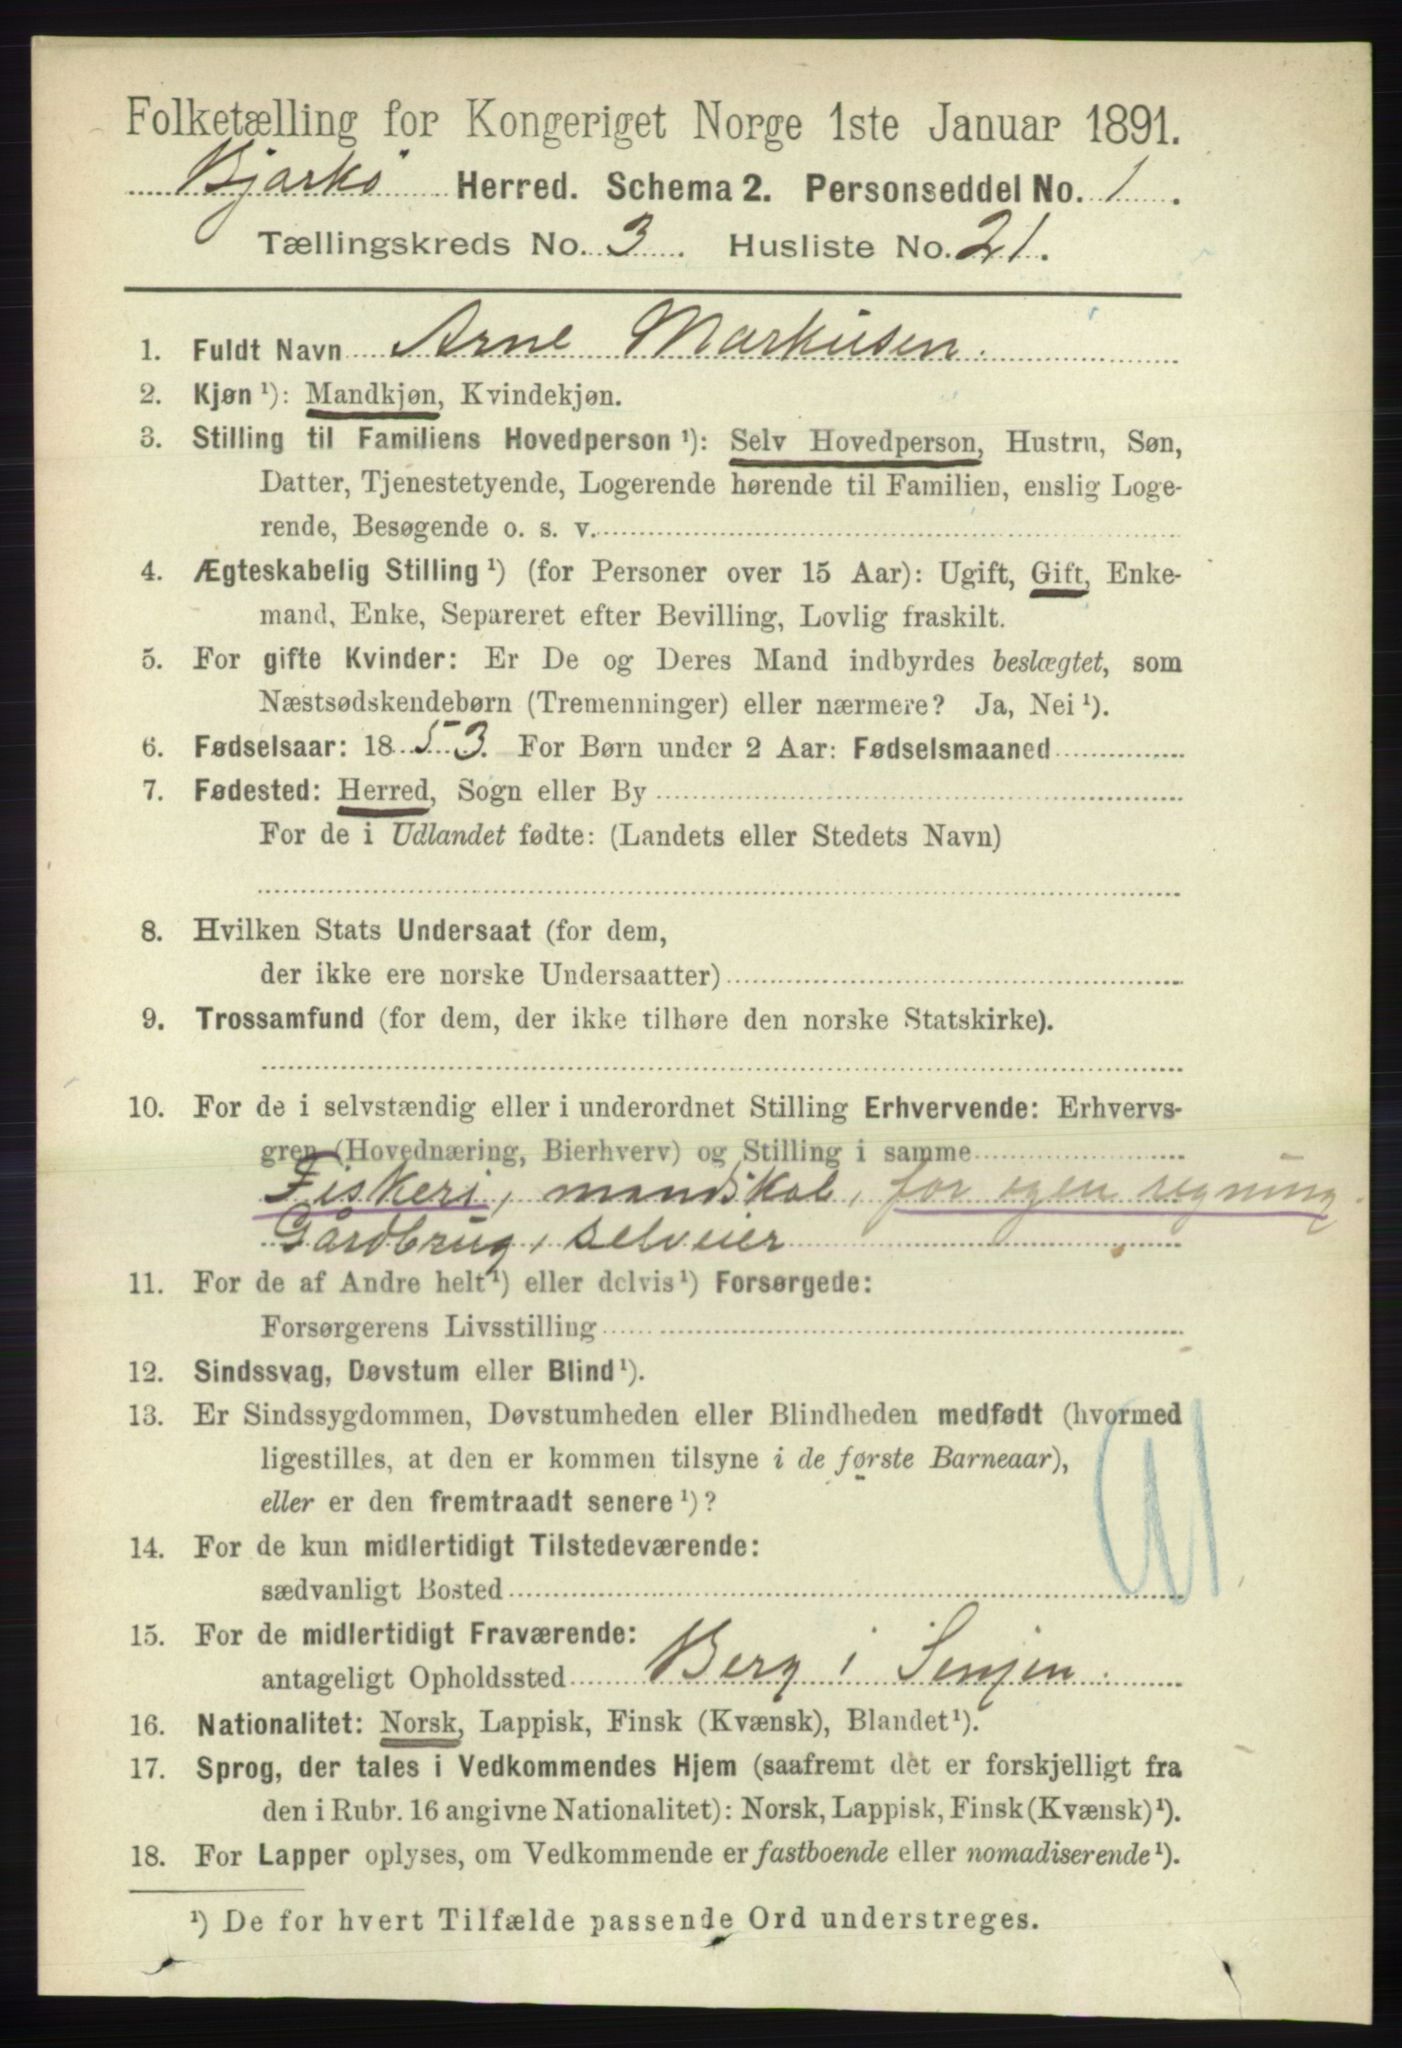 Folketælling for Kongeriget Norge 1ste Januar 1891.
Bjarkø Herred. Schema 2. Personseddel No. 1.
Tællingskreds No. 3. Husliste No. 21.
1. Fuldt Navn Arne Markusen.
2. Kjøn ¹): Mandkjøn, Kvindekjøn.
3. Stilling til Familiens Hovedperson ¹): Selv Hovedperson, Hustru, Søn,
Datter, Tjenestetyende, Logerende hørende til Familien, enslig Loge-
rende, Besøgende o. s. v.
4. Ægteskabelig Stilling ¹) (for Personer over 15 Aar): Ugift, Gift, Enke-
mand, Enke, Separeret efter Bevilling, Lovlig fraskilt.
5. For gifte Kvinder: Er De og Deres Mand indbyrdes beslægtet, som
Næstsødskendebørn (Tremenninger) eller nærmere? Ja, Nei ¹).
6. Fødselsaar: 1853. For Børn under 2 Aar: Fødselsmaaned
7. Fødested: Herred, Sogn eller By
For de i Udlandet fødte: (Landets eller Stedets Navn)
8. Hvilken Stats Undersaat (for dem,
der ikke ere norske Undersaatter)
9. Trossamfund (for dem, der ikke tilhøre den norske Statskirke).
10. For de i selvstændig eller i underordnet Stilling Erhvervende: Erhvervs-
gren (Hovednæring, Bierhverv) og Stilling i samme
Fiskeri, mandskab, for egen regning
Gårdbrug, selveier
11. For de af Andre helt ¹) eller delvis ¹) Forsørgede:
Forsørgerens Livsstilling
12. Sindssvag, Døvstum eller Blind ¹).
13. Er Sindssygdommen, Døvstumheden eller Blindheden medfødt (hvormed
ligestilles, at den er kommen tilsyne i de første Barneaar),
eller er den fremtraadt senere ¹)?
14. For de kun midlertidigt Tilstedeværende:
sædvanligt Bosted
15. For de midlertidigt Fraværende:
antageligt Opholdssted Berg i Senjen.
16. Nationalitet: Norsk, Lappisk, Finsk (Kvænsk), Blandet ¹).
17. Sprog, der tales i Vedkommendes Hjem (saafremt det er forskjelligt fra
den i Rubr. 16 angivne Nationalitet): Norsk, Lappisk, Finsk (Kvænsk) ¹).
18. For Lapper oplyses, om Vedkommende er fastboende eller nomadiserende ¹).
¹) De for hvert Tilfælde passende Ord understreges.